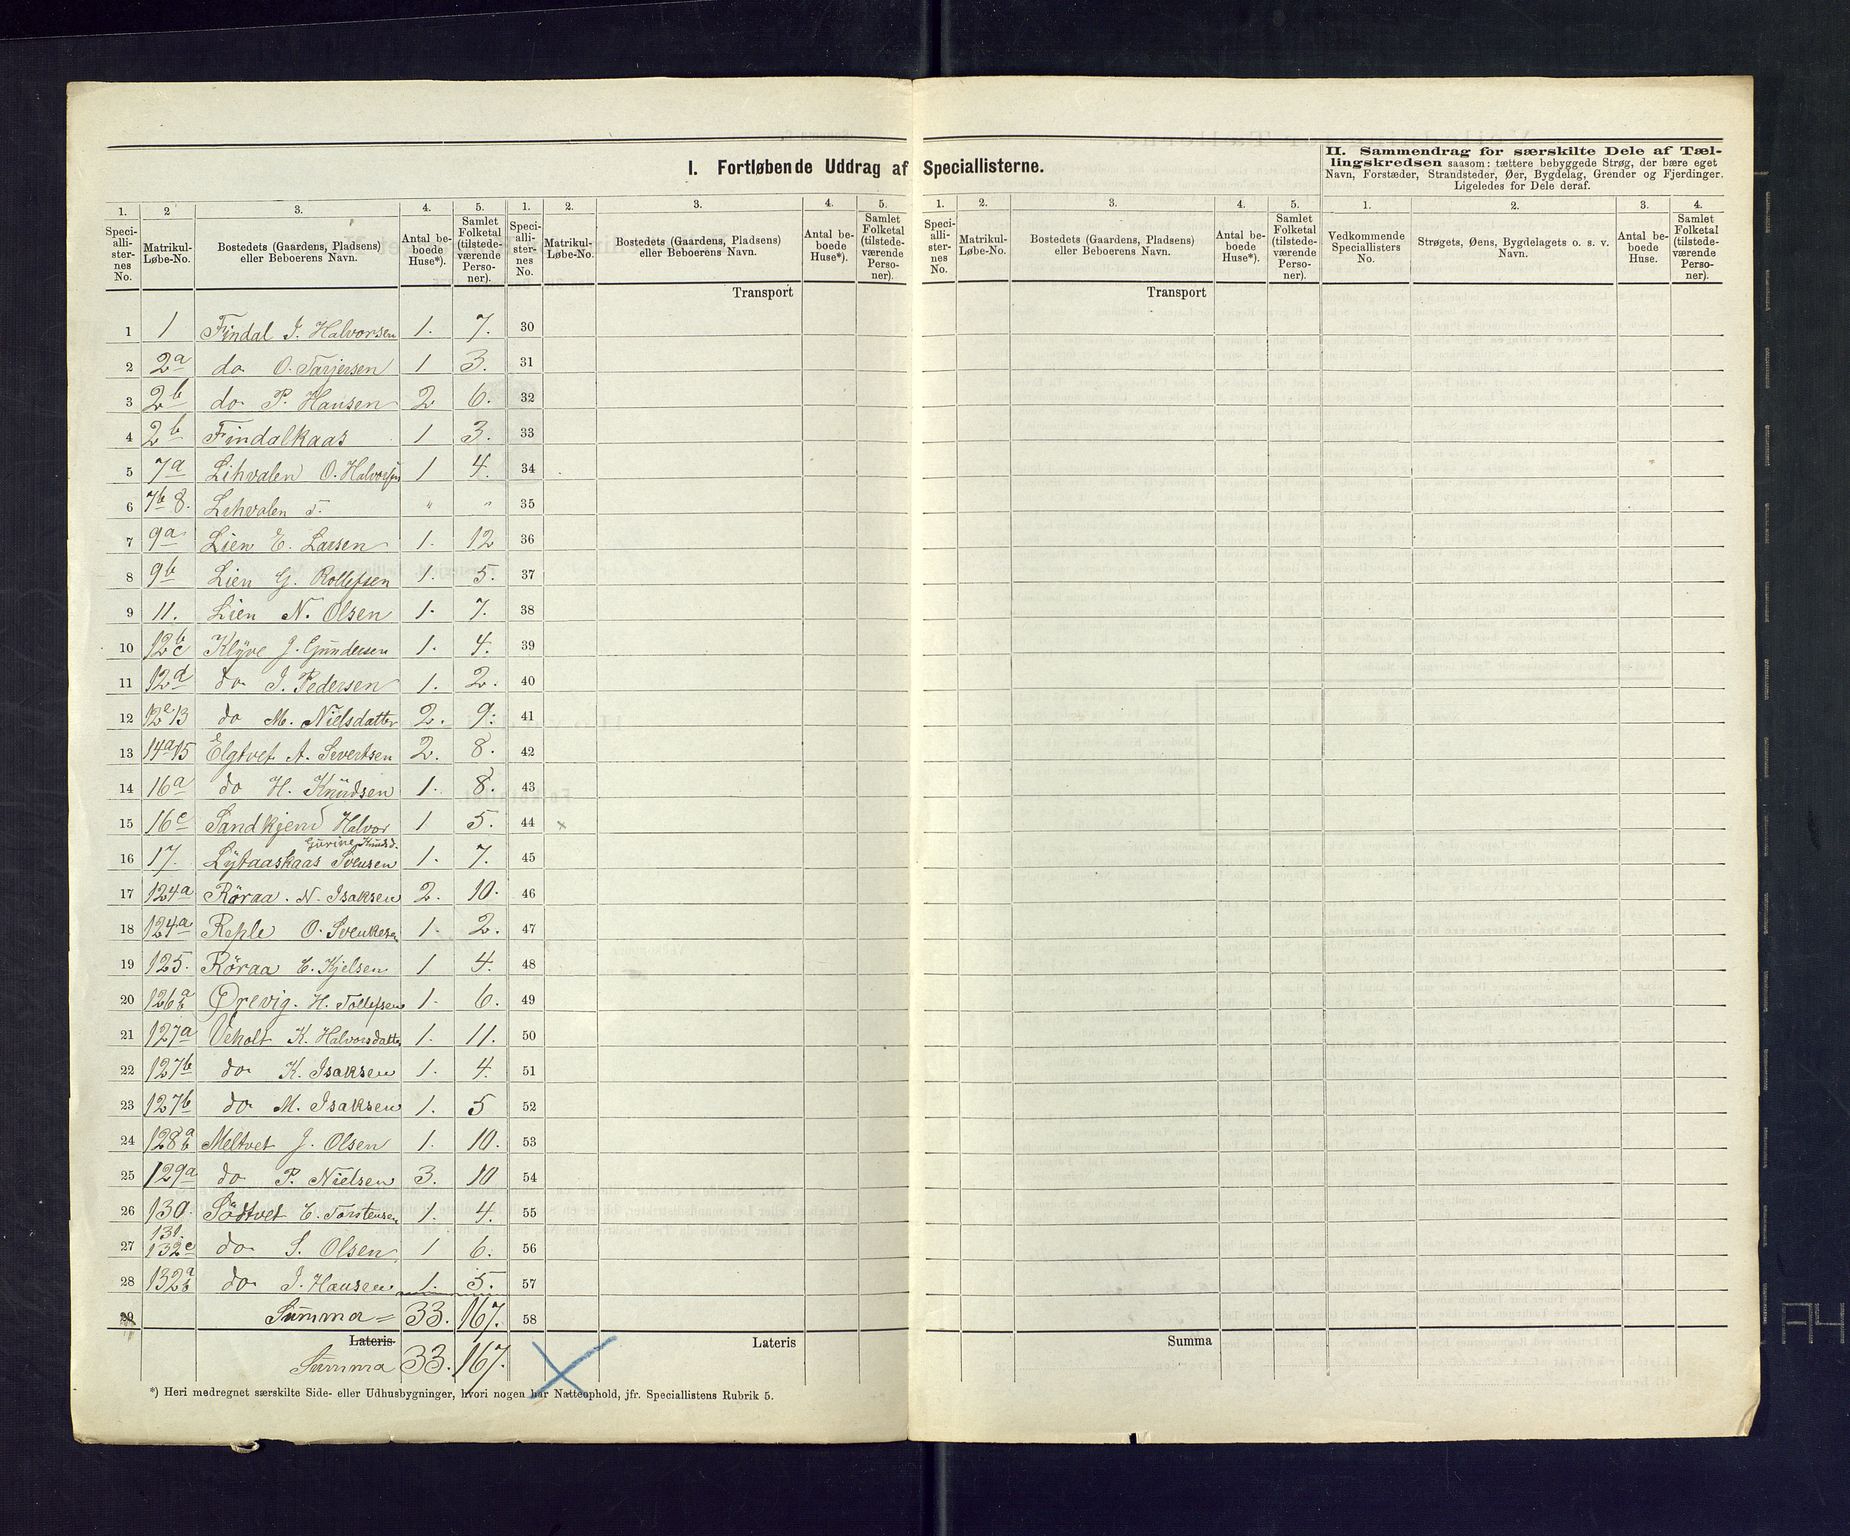 I. Fortløbende Uddrag af Speciallisterne.
II. Sammendrag for særskilte Dele af Tæl-
lingskredsen saasom: tættere bebyggede Strøg, der bære eget
Navn, Forstæder, Strandsteder, Øer, Bygdelag, Grender og Fjerdinger.
Ligeledes for Dele deraf.
1. 2 3. 4. 5. 1. 2. 3. 4. 5. 1. 2. 3. 4. 5. 1. 2. 3. 4.
Speciallisternes No. Matrikul-Løbe-No. Bostedets (Gaardens, Pladsens) eller Beboerens Navn. Antal beboede Huse*). Samlet Folketal (tilstedeværende Personer).
Speciallisternes No. Matrikul-Løbe-No. Bostedets (Gaardens, Pladsens) eller Beboerens Navn. Antal beboede Huse*). Samlet Folketal (tilstedeværende Personer).
Speciallisternes No. Matrikul-Løbe-No. Bostedets (Gaardens, Pladsens) eller Beboerens Navn. Antal beboede Huse*). Samlet Folketal (tilstedeværende Personer).
Vedkommende Speciallisters No. Strøgets, Øens, Bygdelagets o. s. v. Navn. Antal beboede Huse. Samlet Folketal (tilstedeværende Personer).
Transport Transport
1 1 Findal J. Halvorsen 1. 7. 30
2 2a do O. Tarjersen 1 3. 31
3 2b do P. Hansen 2 6. 32
4 2b Findalkaas 1 3. 33
5 7a Lihvalen O. Halvorsen 1 4. 34
6 7b 8. Lihvalen " " 35
7 9a Lien E. Larsen 1. 12 36
8 9b Lien G. Rollefsen 1. 5. 37
9 11. Lien N. Olsen 1. 7. 38
10 12b c Klyve J. Gundersen 1. 4. 39
11 12d do J. Pedersen 1. 2. 40
12 12e 13 do M. Nielsdatter 2. 9. 41
13 14a 15 Elgtvet A. Severtsen 2. 8. 42
14 16a do H. Knudsen 1. 8. 43
15 16c Sandkjend Halvor 1 5. 44
Gurine Knudsd.
16 17. Lybaaskaas Svensen 1. 7. 45
17 124a Röraa. N. Isaksen 2. 10. 46
18 124a Reple O. Svenkesen 1. 2. 47
19 125. Röraa E. Kjelsen 1 4. 48
20 126a b Ørevig. H. Tollefsen 1. 6. 49
21 127a Veholt K. Halvorsdatter 1. 11. 50
22 127b do K. Isaksen 1. 4. 51
23 127b do M. Isaksen 1. 5 52
24 128a b Meltvet J. Olsen 1. 10. 53
25 129a do P. Nielsen 3. 10 54
26 130. Södtvet E. Torstensen 1. 4. 55
27 131. 132c do S. Olsen 1 6. 56
28 132a b do J. Hansen 1. 5. 57
29 Summa = 33. 167. 58
Lateris Lateris Summa
Summa 33. 167.
*) Heri medregnet særskilte Side- eller Udhusbygninger, hvori nogen har Natteophold, jfr. Speciallistens Rubrik 5.
A4